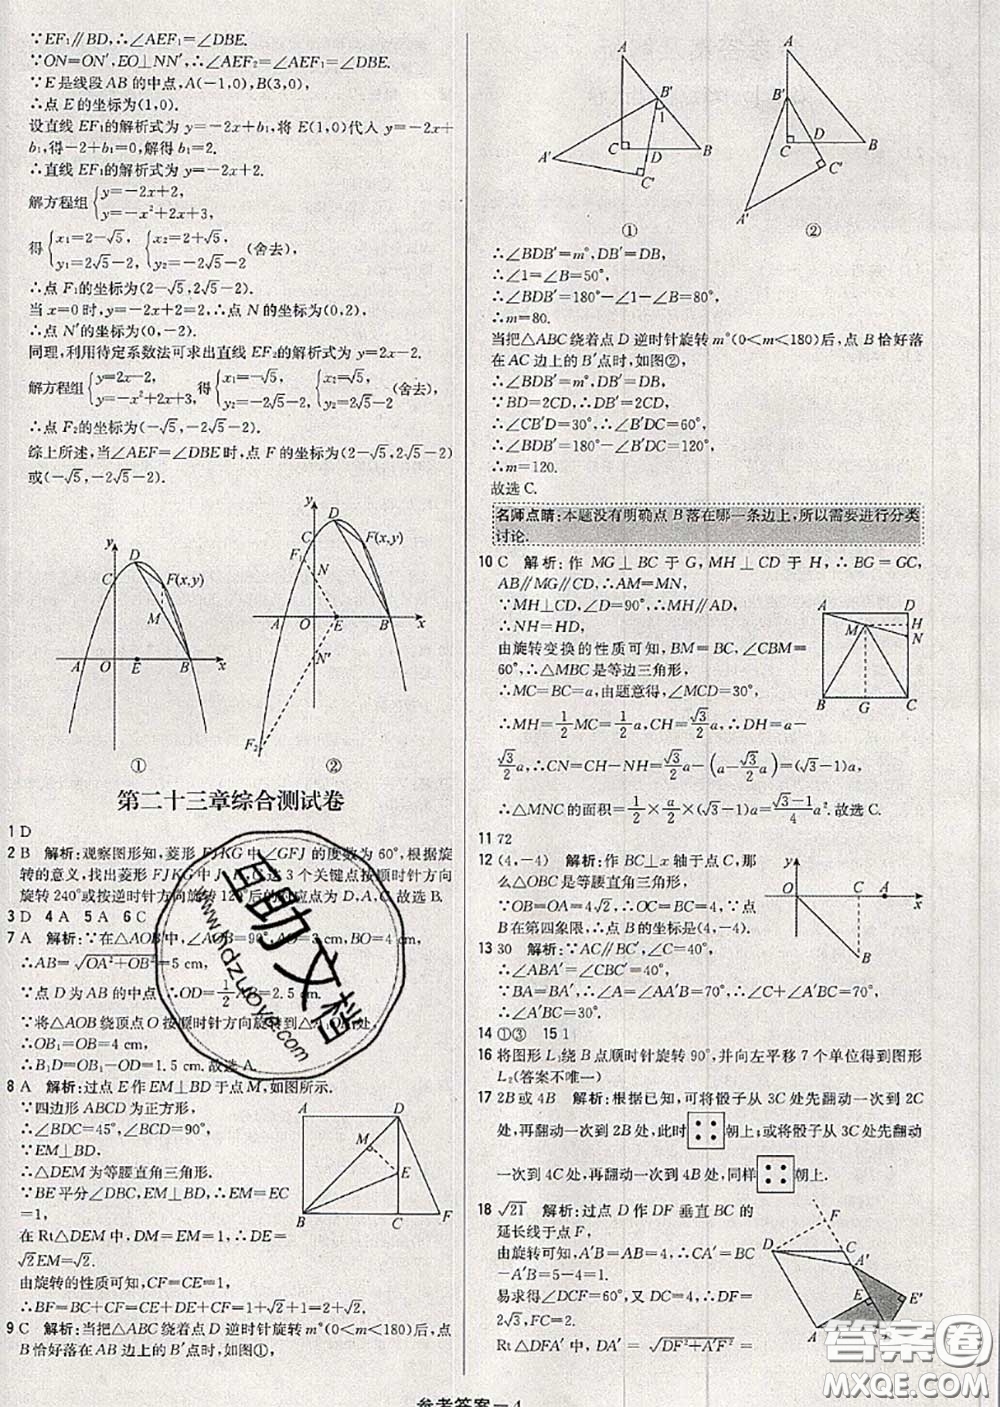 ∵EF₁∥BD,∴∠AEF₁=∠DBE.
∵ON=ON′,EO⊥NN′,∴∠AEF₂=∠DBE.
∵E是线段AB的中点,A(-1,0),B(3,0),
∴点E的坐标为(1,0).
设直线EF₁的解析式为y=-2x+b₁,将E(1,0)代人y=-2x+
b₁,得-2+b₁=0,解得b₁=2.
∴直线EF₁的解析式为y=-2x+2.
解方程组{y=-2x+2, y=-x²+2x+3,
得{x₁=2-√5, y₁=2√5-2, {x₂=2+√5, y₂=-2√5-2(舍去),
∴点F₁的坐标为(2-√5,2√5-2).
当x=0时,y=-2x+2=2,∴点N的坐标为(0,2),
∴点N′的坐标为(0,-2).
同理,利用待定系数法可求出直线EF₂的解析式为y=2x-2.
解方程组{y=2x-2, y=-x²+2x+3, 得{x₁=-√5, y₁=-2√5-2, {x₂=√5, y₂=2√5-2(舍去),
∴点F₂的坐标为(-√5,-2√5-2).
综上所述,当∠AEF=∠DBE时,点F的坐标为(2-√5,2√5-2)
或(-√5,-2√5-2).
y D C F(x,y) M A O E B x
①
y D F₁ C F(x,y) N A O E B x N′ F₂
②
第二十三章综合测试卷
1 D
2 B 解析:观察图形知,菱形FJKG中∠GFJ的度数为60°,根据
旋转的意义,找出菱形FJKG中J,K,G这3个关键点按顺时针方向
旋转240°或按逆时针方向旋转120°后的对应点为D,A,C.故选B.
3 D 4 A 5 A 6 C
7 A 解析:∵在△AOB中,∠AOB=90°,AO=3 cm,BO=4 cm,
∴AB=√OA²+OB²=5 cm,
∵点D为AB的中点,∴OD=1/2AB=2.5 cm.
∵将△AOB绕顶点O按顺时针方向旋转到△A₁OB₁处,
∴OB₁=OB=4 cm,
∴B₁D=OB₁-OD=1.5 cm.故选A.
8 A 解析:过点E作EM⊥BD于点M,如图所示.
∵四边形ABCD为正方形,
∴∠BDC=45°,∠BCD=90°,
∵EM⊥BD.
∴△DEM为等腰直角三角形.
∵BE平分∠DBC,EM⊥BD,∴EM=EC
=1,
在Rt△DEM中,DM=EM=1,∴DE=
√2EM=√2.
由旋转的性质可知,CF=CE=1,
∴BF=BC+CF=CE+DE+CF=1+√2+1=2+√2.
A D M E B C F
9 C 解析:当把△ABC绕着点D逆时针旋转m°(0<m<180)后,点
B恰好落在AB边上的B′点时,如图①,
A B′ 1 A′ C D B C′
①
A B′ D C B C′ A′
②
∴∠BDB′=m°,DB′=DB,
∴∠1=∠B=50°,
∴∠BDB′=180°-∠1-∠B=80°,
∴m=80.
当把△ABC绕着点D逆时针旋转m°(0<m<180)后,点B恰好落
在AC边上的B′点时,如图②,
∴∠BDB′=m°,DB′=DB,
∵BD=2CD,∴DB′=2CD,
∴∠CB′D=30°,∴∠B′DC=60°,
∴∠BDB′=180°-∠B′DC=120°,
∴m=120.
故选C.
名师点睛:本题没有明确点B落在哪一条边上,所以需要进行分类
讨论.
10 C 解析:作MG⊥BC于G,MH⊥CD于H,∴BG=GC,
AB∥MG∥CD,∴AM=MN,
∵MH⊥CD,∠D=90°,∴MH∥AD,
∴NH=HD,
由旋转变换的性质可知,BM=BC,∠CBM=
60°,∴△MBC是等边三角形,
∴MC=BC=a,由题意得,∠MCD=30°,
∴MH=1/2MC=1/2a,CH=√3/2a,∴DH=a-
√3/2a,∴CN=CH-NH=√3/2a-(a-√3/2a)=(√3-1)a,
∴△MNC的面积=1/2×a/2×(√3-1)a=(√3-1)/4a².故选C.
A D M H N B G C
11 72
12 (4,-4) 解析:作BC⊥x轴于点C,那
么△OBC是等腰直角三角形,
∵OB=OA=4√2,∴OC=BC=4,又∵点
B在第四象限,∴点B的坐标为(4,-4).
y O C A x B
13 30 解析:∵AC∥BC′,∠C=40°,
∴∠ABA′=∠CBC′=40°,
∵BA=BA′,∴∠A=∠AA′B=70°,∴∠C′A′B=70°,
∴∠C′=∠C=40°,∴∠A′BC′=70°,
∴∠ABC′=30°.
14 ①③ 15 1
16 将图形L₁绕B点顺时针旋转90°,并向左平移7个单位得到图形
L₂(答案不唯一)
17 2B或4B 解析:根据已知,可将骰子从3C处先翻动一次到2C
处,再翻动一次到2B处,此时朝上;或将骰子从3C处先翻动
一次到4C处,再翻动一次到4B处,同样朝上.
18 √21 解析:过点D作DF垂直BC的
延长线于点F,
由旋转可知,A′B=AB=4,∴CA′=BC
-A′B=5-4=1.
易求得∠DCF=60°,又DC=4,∴DF=
2√3,FC=2.
Rt△DFA′中,DA′=√DF²+A′F²=
F D C A′ E E′
参考答案—4
互助文档
www.hdzuoye.com
答案圈
MXQE.COM